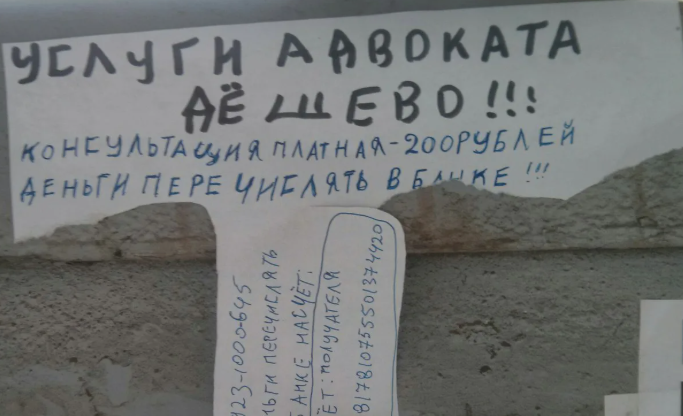 УСЛУГИ АДВОКАТА
ДЁШЕВО!!!
КОНСУЛЬТАЦИЯ ПЛАТНАЯ-200РУБЛЕЙ
ДЕНЬГИ ПЕРЕЧИСЛЯТЬ В БАНКЕ!!!
923-1000-645
НЬГИ ПЕРЕЧИСЛЯТЬ
БАНКЕ НА СЧЁТ:
ЁТ: ПОЛУЧАТЕЛЯ
817810755501374920